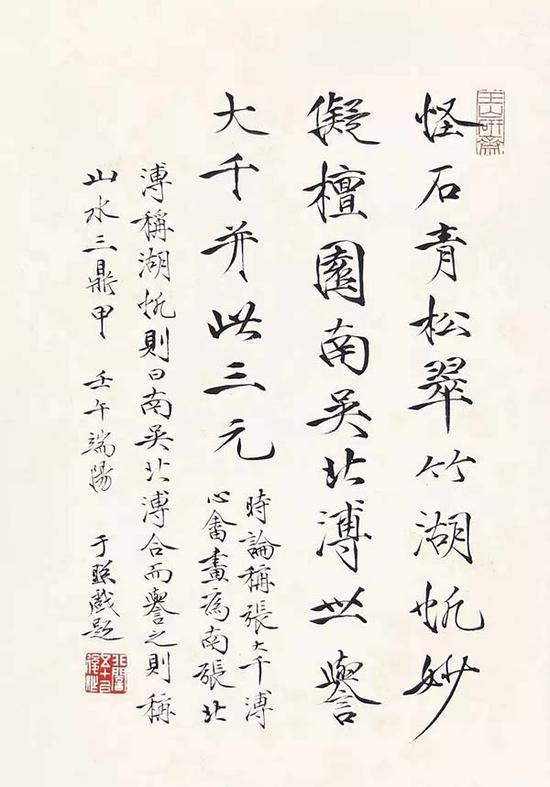 怪石青松翠竹湖帆妙
儗檀園南吳北溥世譽
大千并此三元
時論稱張大千溥
心畬畫為南張北
溥稱湖帆則曰南吳北溥合而譽之則稱
山水三鼎甲 壬午端陽 于照戲題